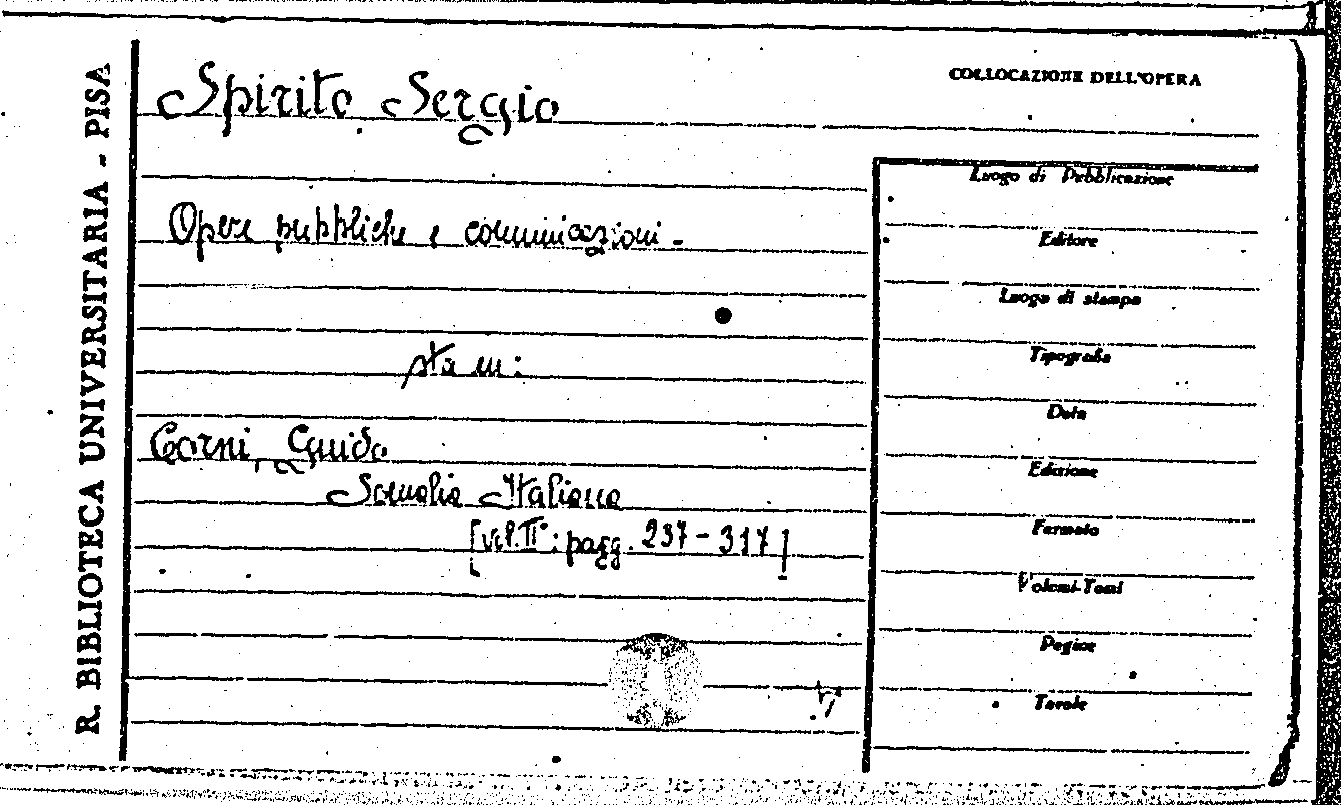 R. BIBLIOTECA UNIVERSITARIA - PISA
COLLOCAZIONE DELL'OPERA
Spirito Sergio
Opere pubbliche e comunicazioni -
sta in:
Corni, Guido
Somalia Italiana
[vol. II°: pagg. 237-317]
Luogo di Pubblicazione
Editore
Luogo di stampa
Tipografia
Data
Edizione
Formato
Volumi-Tomi
Pagine
Tavole